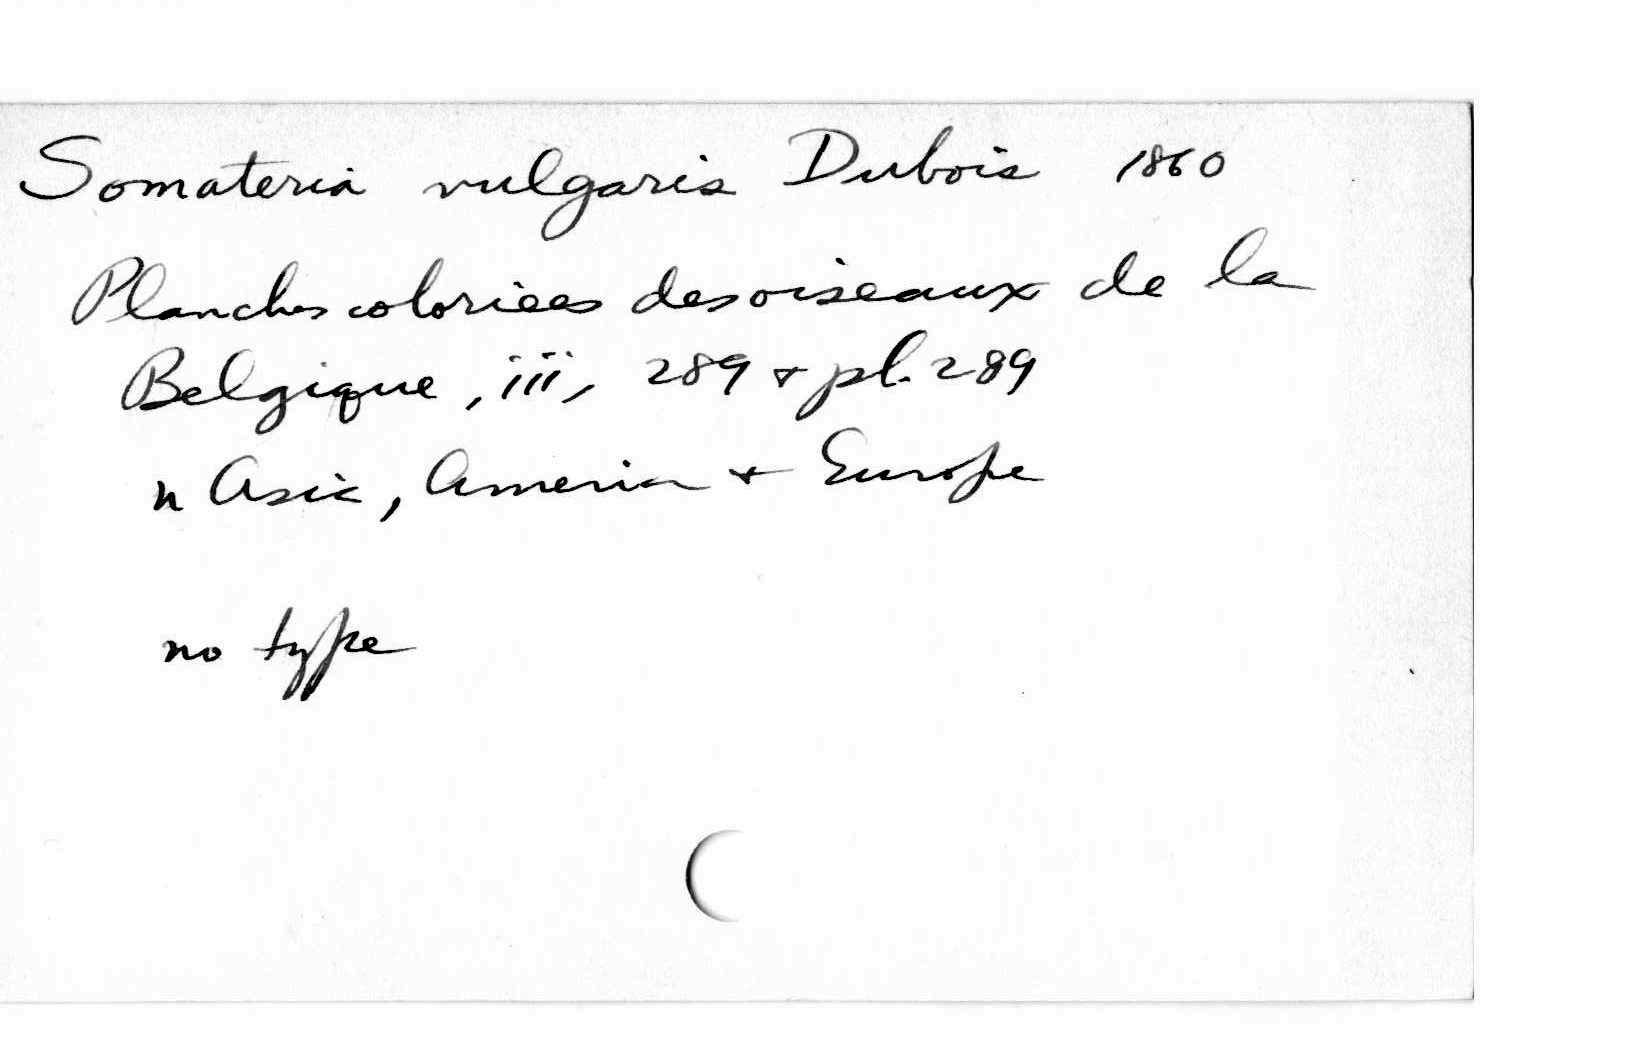 Somateria vulgaris Dubois 1860
Planches coloriees des oiseaux de la
Belgique, iii, 289 + pl. 289
n Asia, America + Europe
no type